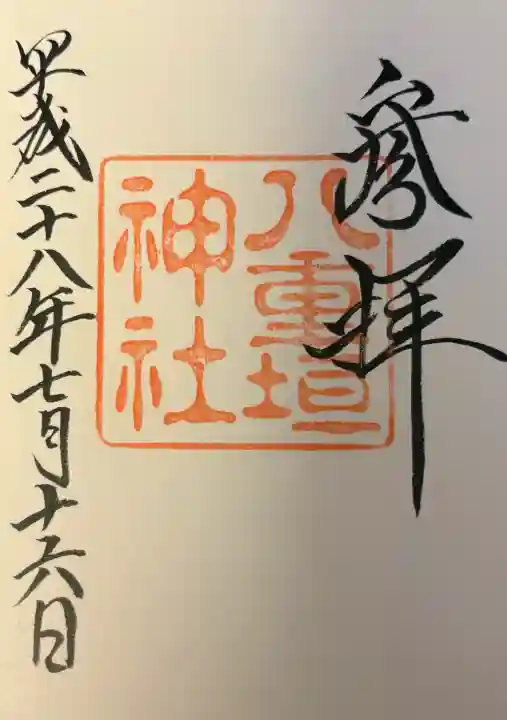 參拝
八重垣
神社
平成二十八年七月十六日